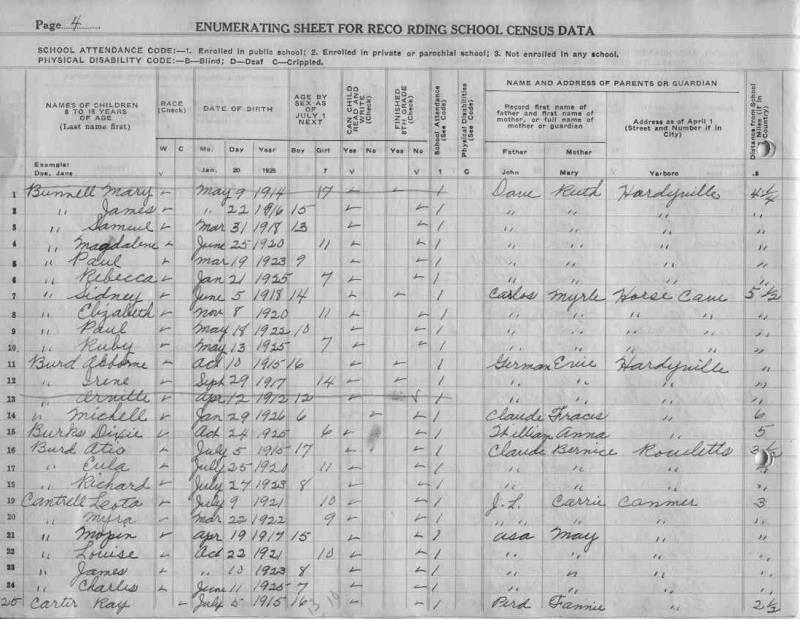 Page 4
ENUMERATING SHEET FOR RECO RDING SCHOOL CENSUS DATA
SCHOOL ATTENDANCE CODE:—1. Enrolled in public school; 2. Enrolled in private or parochial school; 3. Not enrolled in any school.
PHYSICAL DISABILITY CODE:—B—Blind; D—Deaf C—Crippled.
NAMES OF CHILDREN 6 TO 18 YEARS OF AGE (Last name first) RACE (Check) DATE OF BIRTH AGE BY SEX AS OF JULY 1 NEXT CAN CHILD READ AND WRITE (Check) FINISHED 8TH GRADE (Check) School Attendance (See Code) Physical Disabilities (See Code) NAME AND ADDRESS OF PARENTS OR GUARDIAN Distance from School Miles (if in Country)
Record first name of father and first name of mother, or full name of mother or guardian Address as of April 1 (Street and Number if in City)
W C Mo. Day Year Boy Girl Yes No Yes No Father Mother
Example: Doe, Jane V Jan. 20 1925 7 V V 1 C John Mary Yarboro .8
1 Bunnell Mary ✓ May 9 1914 17 ✓ ✓ 1 Dave Ruth Hardyville 4 1/4
2 " James ✓ " 22 1916 15 ✓ ✓ 1 " " " "
3 " Samuel ✓ Mar 31 1918 13 ✓ ✓ 1 " " " "
4 " Magdalene ✓ June 25 1920 11 ✓ ✓ 1 " " " "
5 " Paul ✓ Mar 19 1923 9 ✓ ✓ 1 " " " "
6 " Rebecca ✓ Jan 21 1925 7 ✓ ✓ 1 " " " "
7 " Sidney ✓ June 5 1918 14 ✓ ✓ 1 Carlos Myrle Horse Cave 5 1/2
8 " Elizabeth ✓ Nov 8 1920 11 ✓ ✓ 1 " " " " "
9 " Paul ✓ May 18 1922 10 ✓ ✓ 1 " " " " "
10 " Ruby ✓ May 13 1925 7 ✓ ✓ 1 " " " " "
11 Burd ✓ Oct 10 1915 16 ✓ ✓ 1 German Evie Hardyville "
12 " Irene ✓ Sept 29 1917 14 ✓ ✓ 1 " " " "
13 " ✓ Apr 12 1912 12 ✓ 1 " " " "
14 " Michell ✓ Jan 29 1926 6 ✓ ✓ 1 Claude " 6
15 Burks Dixie ✓ Oct 24 1925 6 ✓ ✓ 1 William Anna " 5
16 Burd ✓ July 5 1915 17 ✓ ✓ 1 Claude Bernice Rowletts 3 1/2
17 " Eula ✓ July 25 1920 11 ✓ ✓ 1 " " " "
18 " Richard ✓ July 27 1923 8 ✓ ✓ 1 " " " "
19 Cantrell Leota ✓ July 9 1921 10 ✓ ✓ 1 J.L. Carrie Canmer 3
20 " Myra ✓ Mar 22 1922 9 ✓ ✓ 1 " " " " "
21 " ✓ Apr 19 1917 15 ✓ ✓ 1 Asa May " "
22 " Louise ✓ Oct 22 1921 10 ✓ ✓ 1 " " " "
23 " James ✓ " 10 1923 8 ✓ ✓ 1 " " " "
24 " Charles ✓ June 11 1925 7 ✓ ✓ 1 " " " "
25 Carter Ray ✓ July 5 1915 16 ✓ ✓ 1 Fannie " 2 1/2